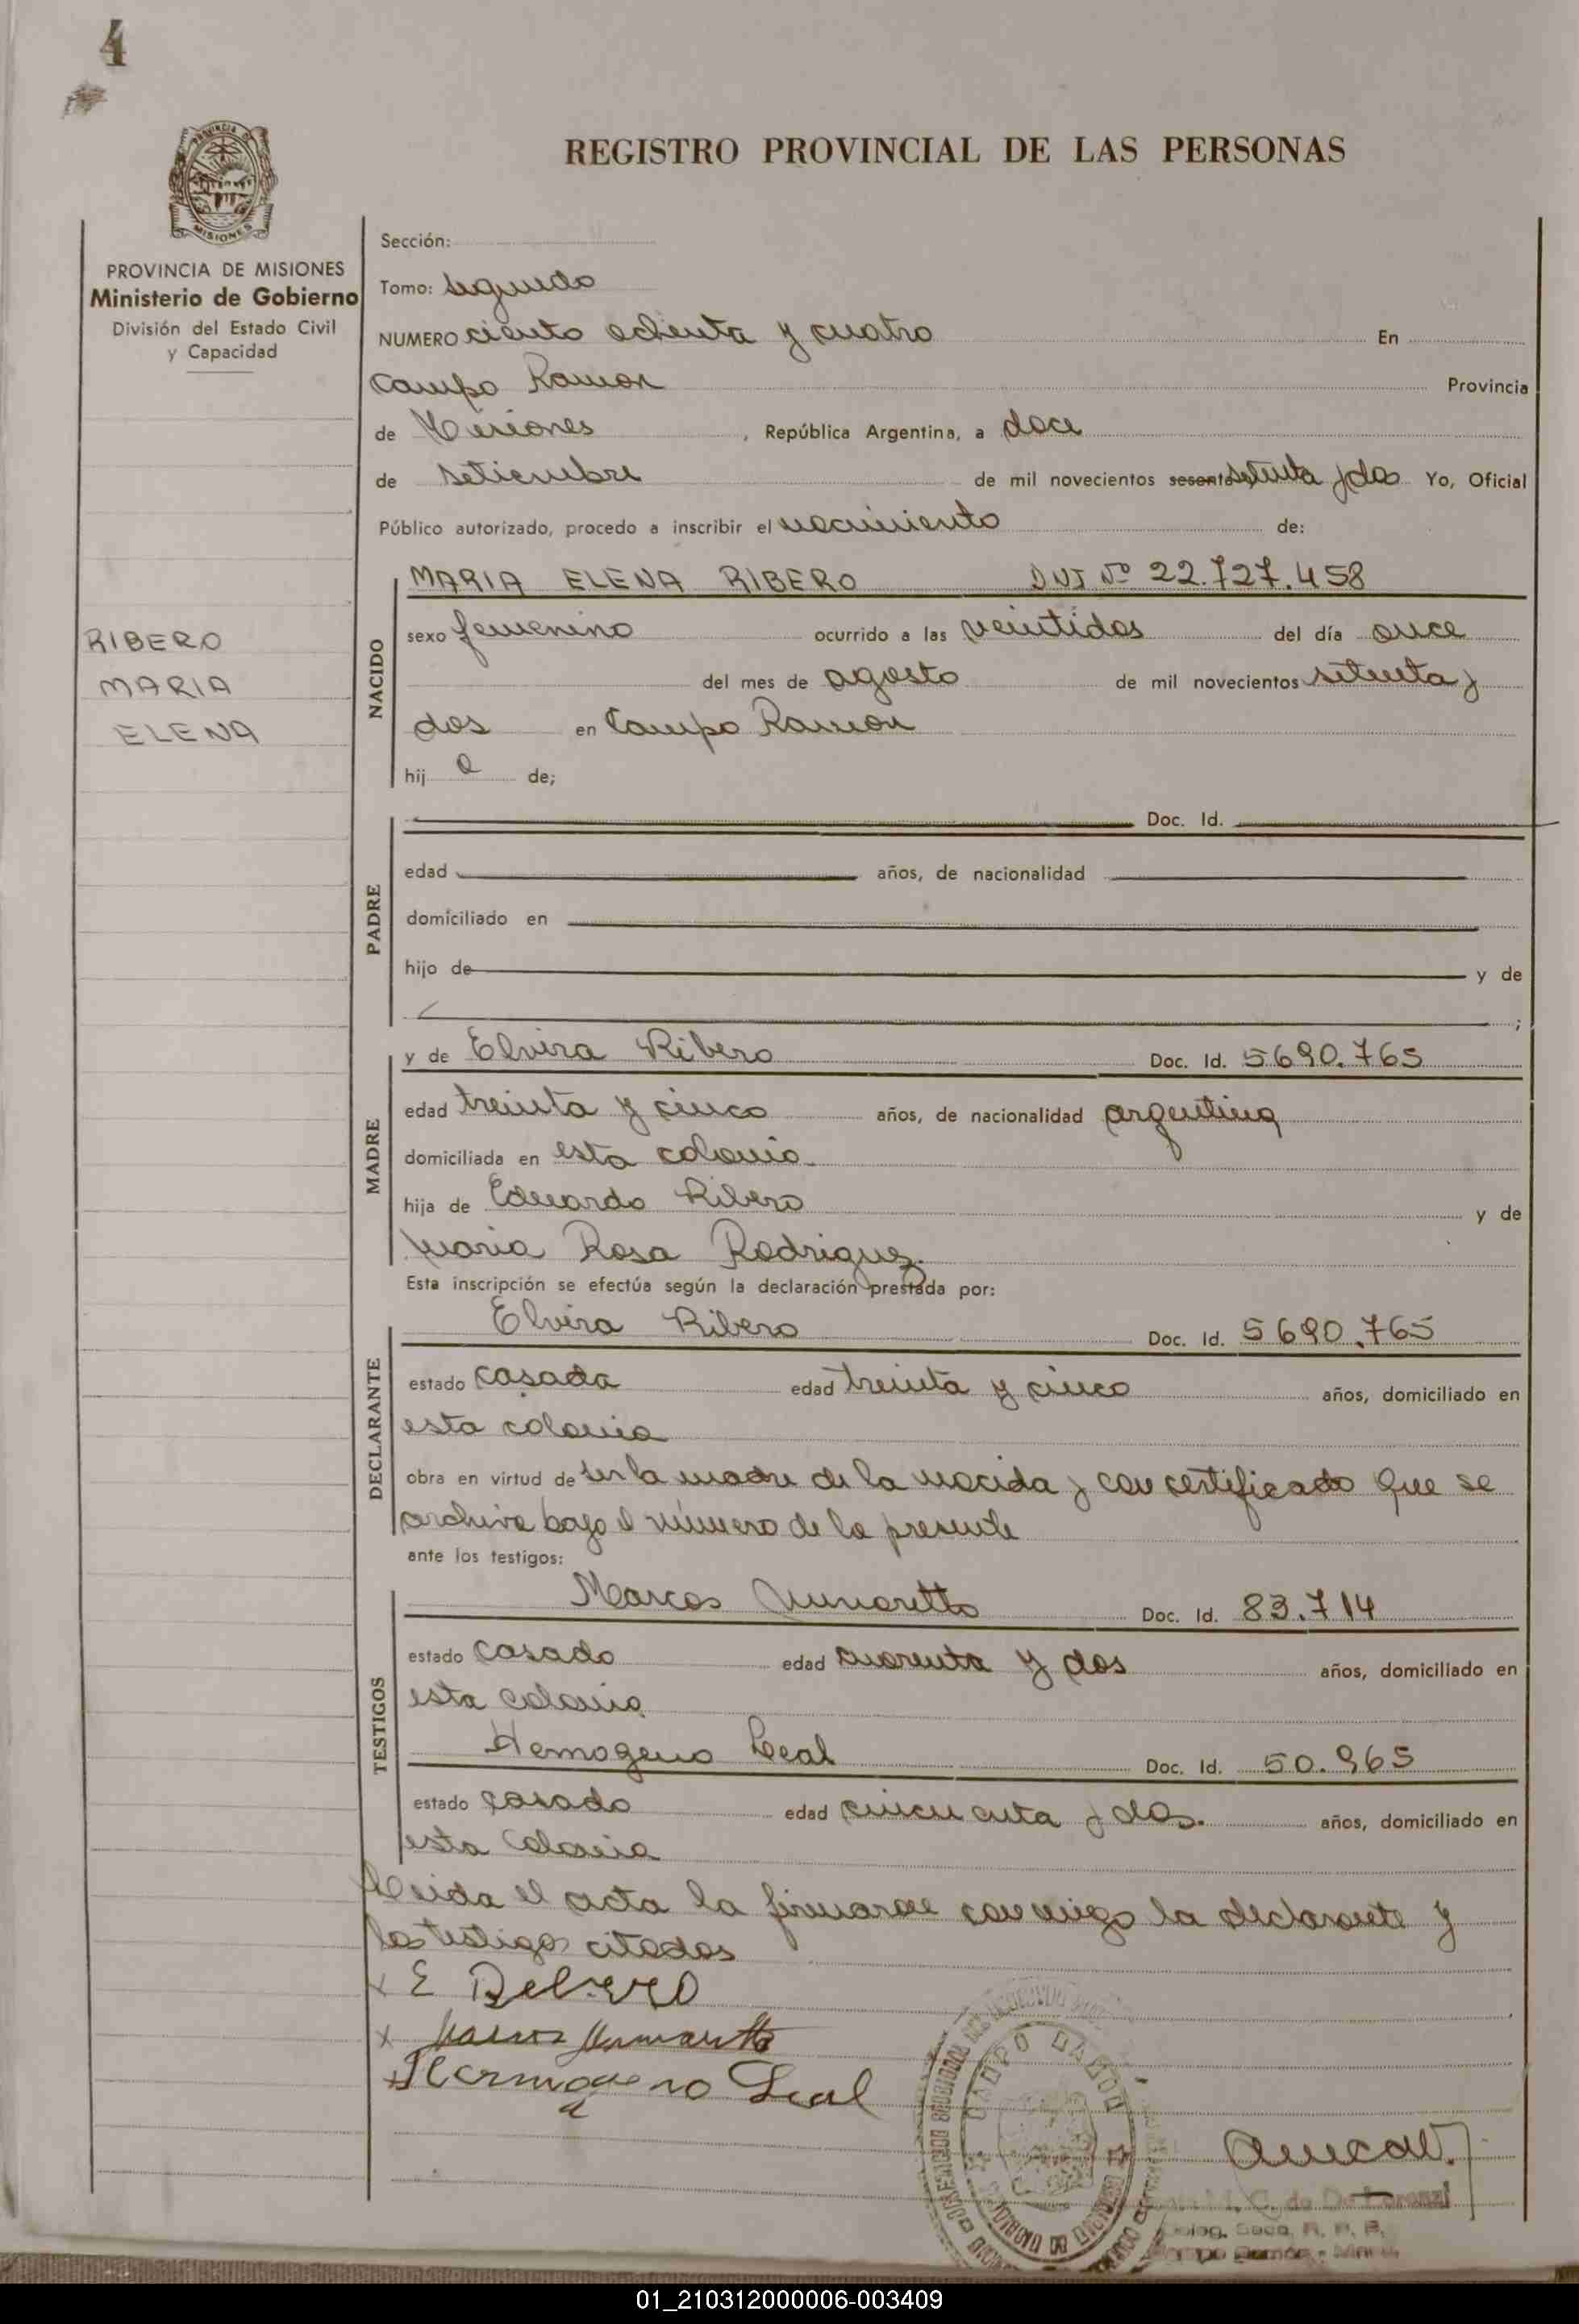 4
REGISTRO PROVINCIAL DE LAS PERSONAS
PROVINCIA DE MISIONES
Ministerio de Gobierno
División del Estado Civil
y Capacidad
RIBERO
MARIA
ELENA
Sección:
Tomo: segundo
NUMERO ciento ochenta y cuatro En
Campo Ramon Provincia
de Misiones, República Argentina, a doce
de setiembre de mil novecientos sesenta setenta y dos Yo, Oficial
Público autorizado, procedo a inscribir el nacimiento de:
NACIDO
MARIA ELENA RIBERO DNI Nº 22.727.458
sexo femenino ocurrido a las veintidos del día once
del mes de agosto de mil novecientos setenta y
dos en Campo Ramon
hij a de;
PADRE
Doc. Id.
edad años, de nacionalidad
domiciliado en
hijo de y de
;
MADRE
y de Elvira Ribero Doc. Id. 5690.765
edad treinta y cinco años, de nacionalidad argentina
domiciliada en esta colonia.
hija de Eduardo Ribero y de
Maria Rosa Rodriguez.
Esta inscripción se efectúa según la declaración prestada por:
DECLARANTE
Elvira Ribero Doc. Id. 5690.765
estado casada edad treinta y cinco años, domiciliado en
esta colonia
obra en virtud de ser la madre de la nacida y con certificado que se
archiva bajo el número de la presente
ante los testigos:
TESTIGOS
Marcos Doc. Id. 83.714
estado casado edad cuarenta y dos años, domiciliado en
esta colonia
Hemogeno Leal Doc. Id. 50.965
estado casado edad cincuenta y dos. años, domiciliado en
esta Colonia
Leida el acta la firmaron conmigo la declarante y
los testigos citados
x E
x
+ Leal
CAMPO RAMON
C. de De Lorenzi
01_210312000006-003409